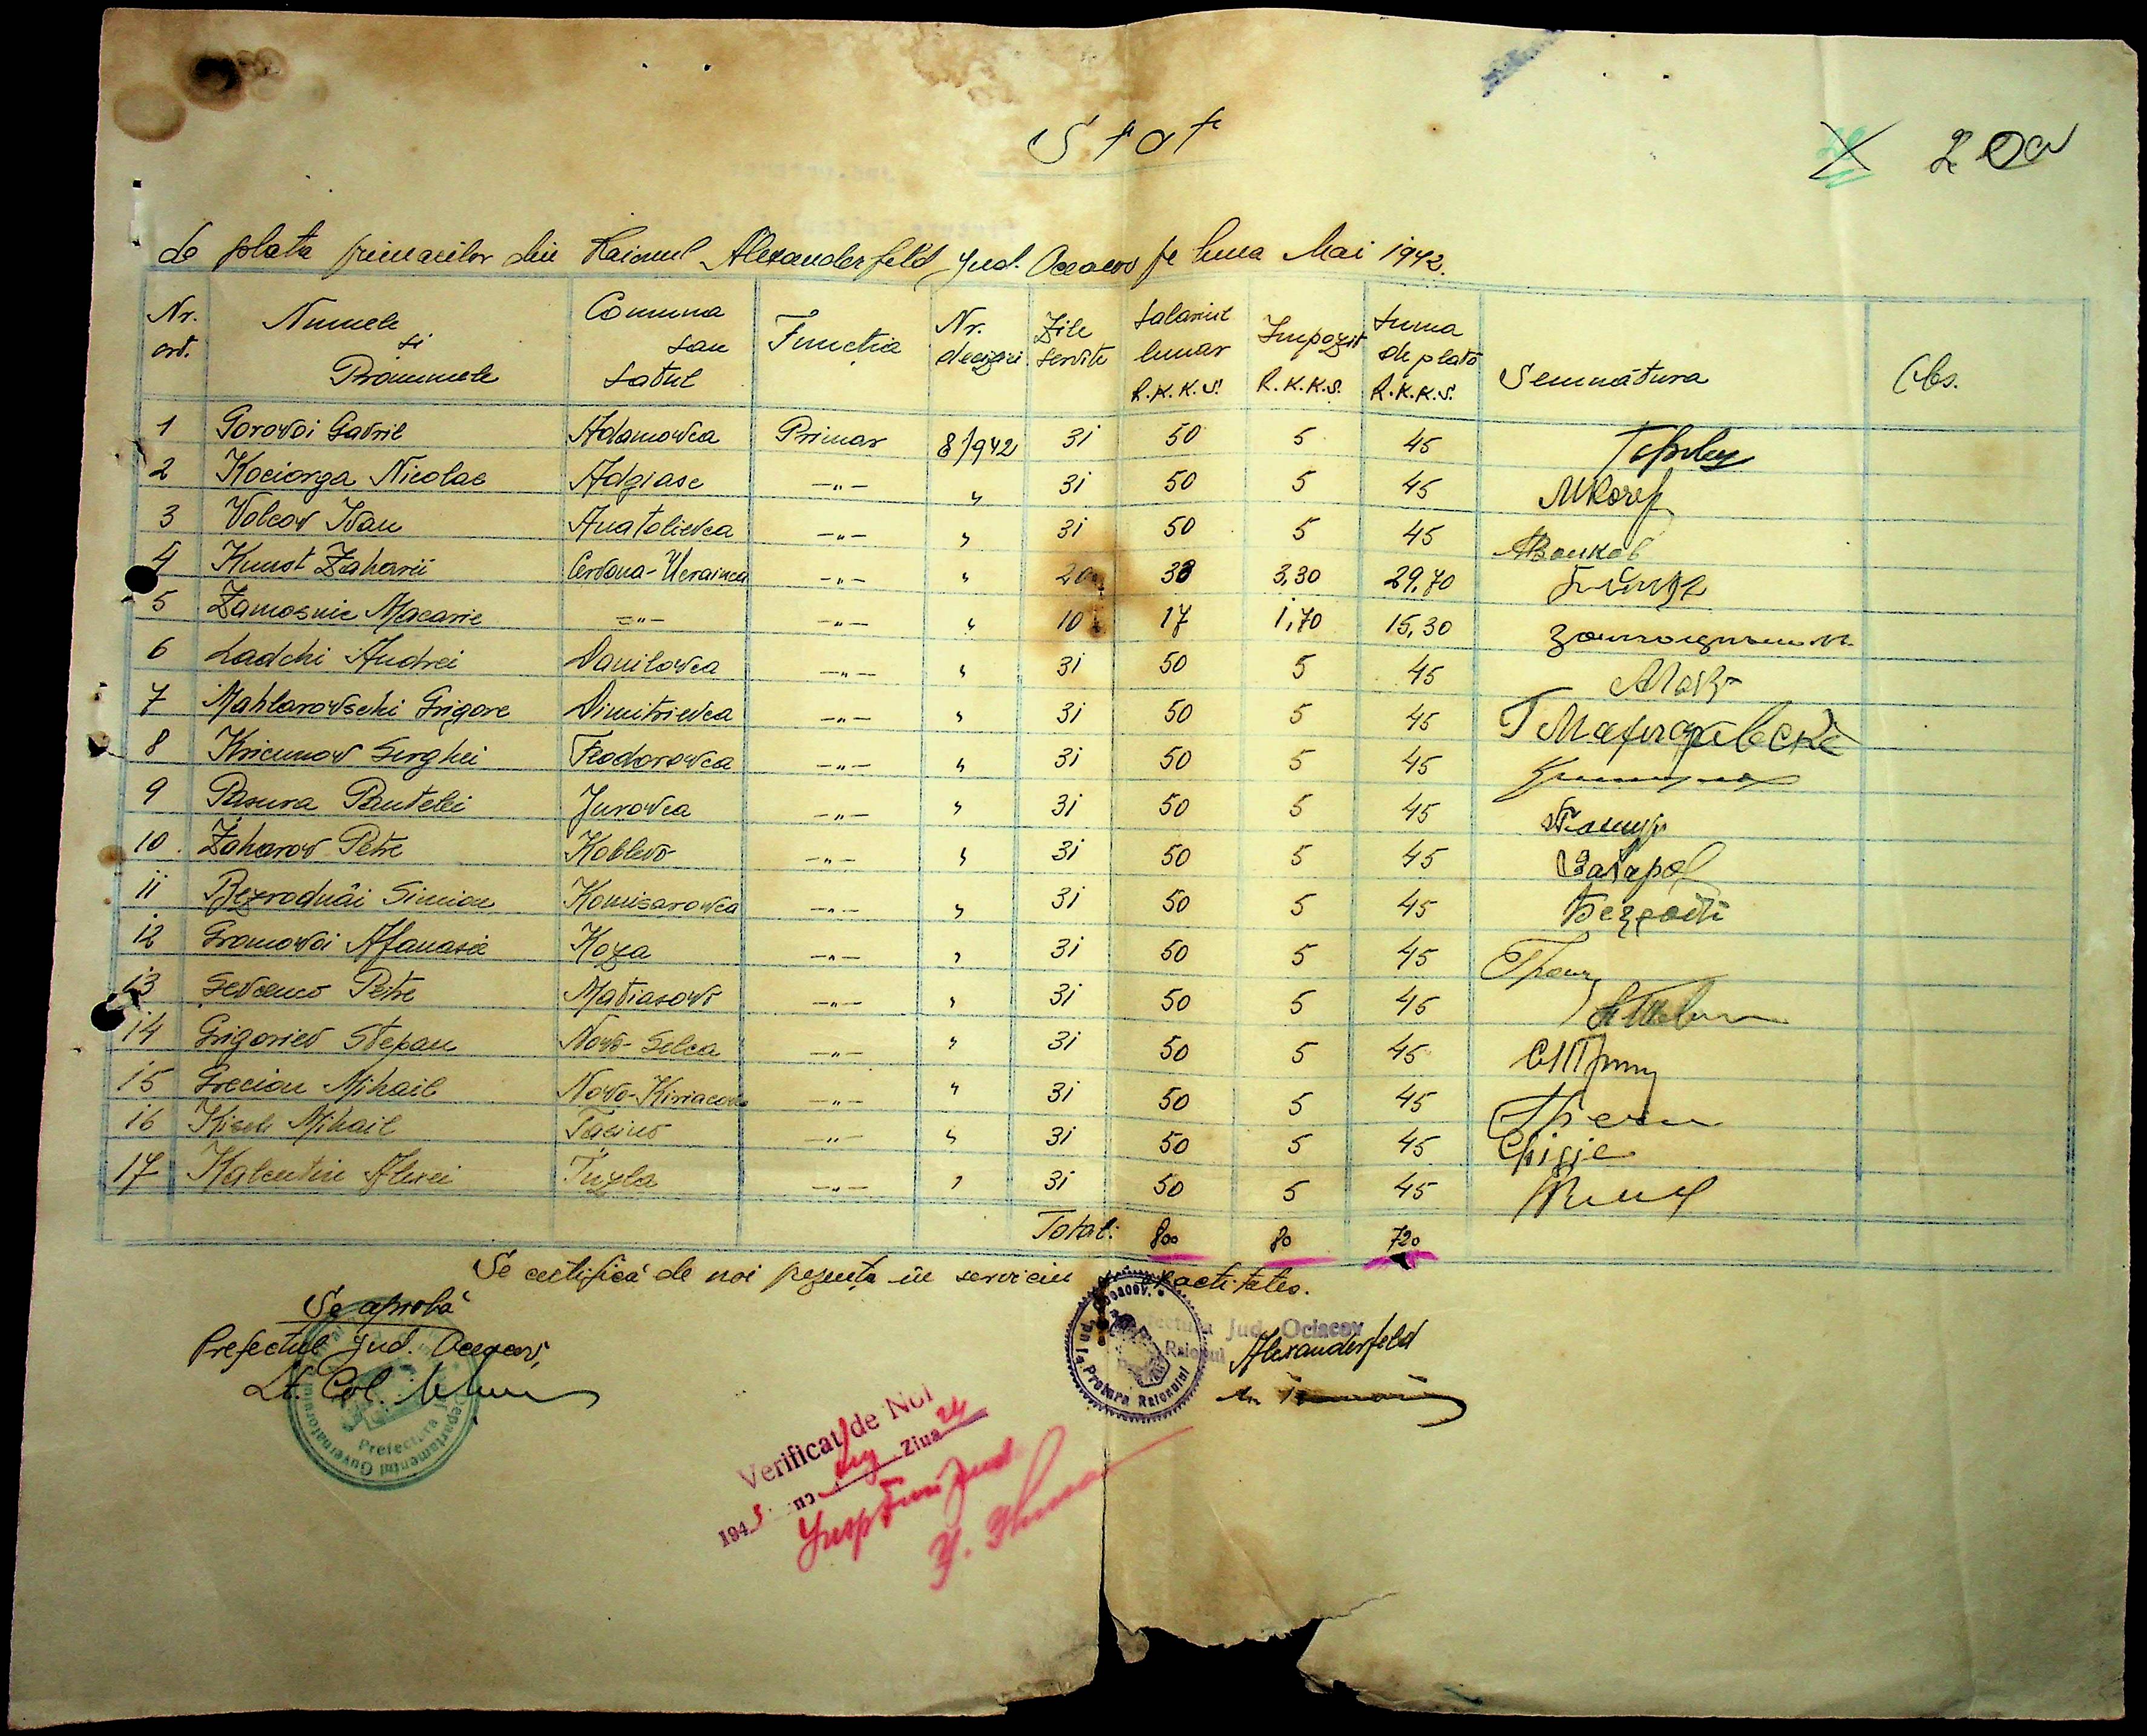 Stat
20
de plata primarilor din Raionul Alexanderfeld jud. Oceacov pe luna Mai 1942.
Nr. ord. Numele si Pronumele Comuna sau Satul Functia Nr. deciziei Zile servite Salariul lunar R.K.K.S. Impozit R.K.K.S. Suma de plată R.K.K.S. Semnătura Obs.
1 Gorowoi Gavril Adamowca Primar 8/942 31 50 5 45
2 Kociorga Nicolae Adgiase -"- " 31 50 5 45
3 Volcov Ivan Anatolievca -"- " 31 50 5 45 Волков
4 Kunst Zaharii Cervona-Ucrainca -"- " 20 33 3,30 29,70
5 Zamosnic Macarie -"- -"- " 10 17 1,70 15,30
6 Ladchi Andrei Danilowca -"- " 31 50 5 45
7 Mahlarowschi Grigore Dimitrievca -"- " 31 50 5 45
8 Kricunow Serghei Feodorowca -"- " 31 50 5 45
9 Pasura Pantelei Jurowca -"- " 31 50 5 45
10 Zaharov Petre Koblevo -"- " 31 50 5 45 Захаров
11 Bezrodnâi Simion Komisarowca -"- " 31 50 5 45
12 Gromowoi Afanasie Koza -"- " 31 50 5 45
13 Sevcenco Petre Matiasowo -"- " 31 50 5 45
14 Grigoriev Stepan Nowo-Selca -"- " 31 50 5 45
15 Grecion Mihail Nowo-Kiriacovo -"- " 31 50 5 45
16 Kiseli Mihail Tasino -"- " 31 50 5 45
17 Kalentin Alexei Tuzla -"- " 31 50 5 45
Total: 800 80 720
Se certifică de noi prezența în serviciu exactitatea.
Se aprobă
Prefectul jud. Oceacov,
Lt. Col.
Prefectura Jud. Ociacov
Raionul Alexanderfeld
Pretura Raionului
Verificat de Noi
1943 Ziua 24